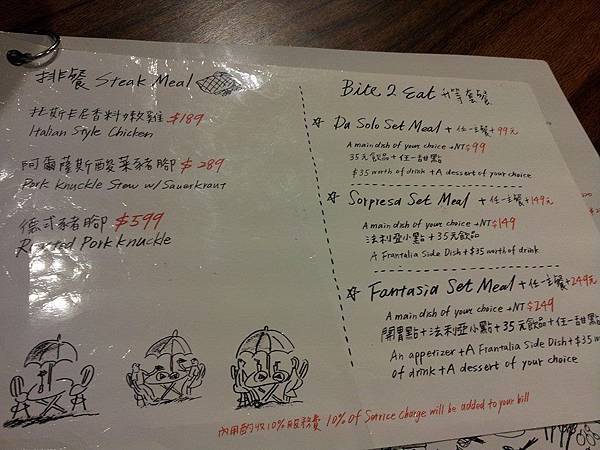 排餐 Steak Meal
托斯卡尼香料嫩雞 $189
Italian Style Chicken
阿爾薩斯酸菜豬腳 $289
Pork Knuckle Stew w/ Sauerkraut
德式豬腳 $599
Roasted Pork Knuckle
Bite 2 Eat 升等套餐
Da Solo Set Meal + 任一主餐 + 99元
A main dish of your choice + NT$99
35元飲品 + 任一甜點
$35 worth of drink + A dessert of your choice
Sorpresa Set Meal + 任一主餐 + 149元
A main dish of your choice + NT$149
法利亞小點 + 35元飲品
A Frantalia Side Dish + $35 worth of drink
Fantasia Set Meal + 任一主餐 + 249元
A main dish of your choice + NT$249
開胃點 + 法利亞小點 + 35元飲品 + 任一甜點
An appetizer + A Frantalia Side Dish + $35 worth
of drink + A dessert of your choice
內用酌收10%服務費 10% of Service Charge will be added to your bill